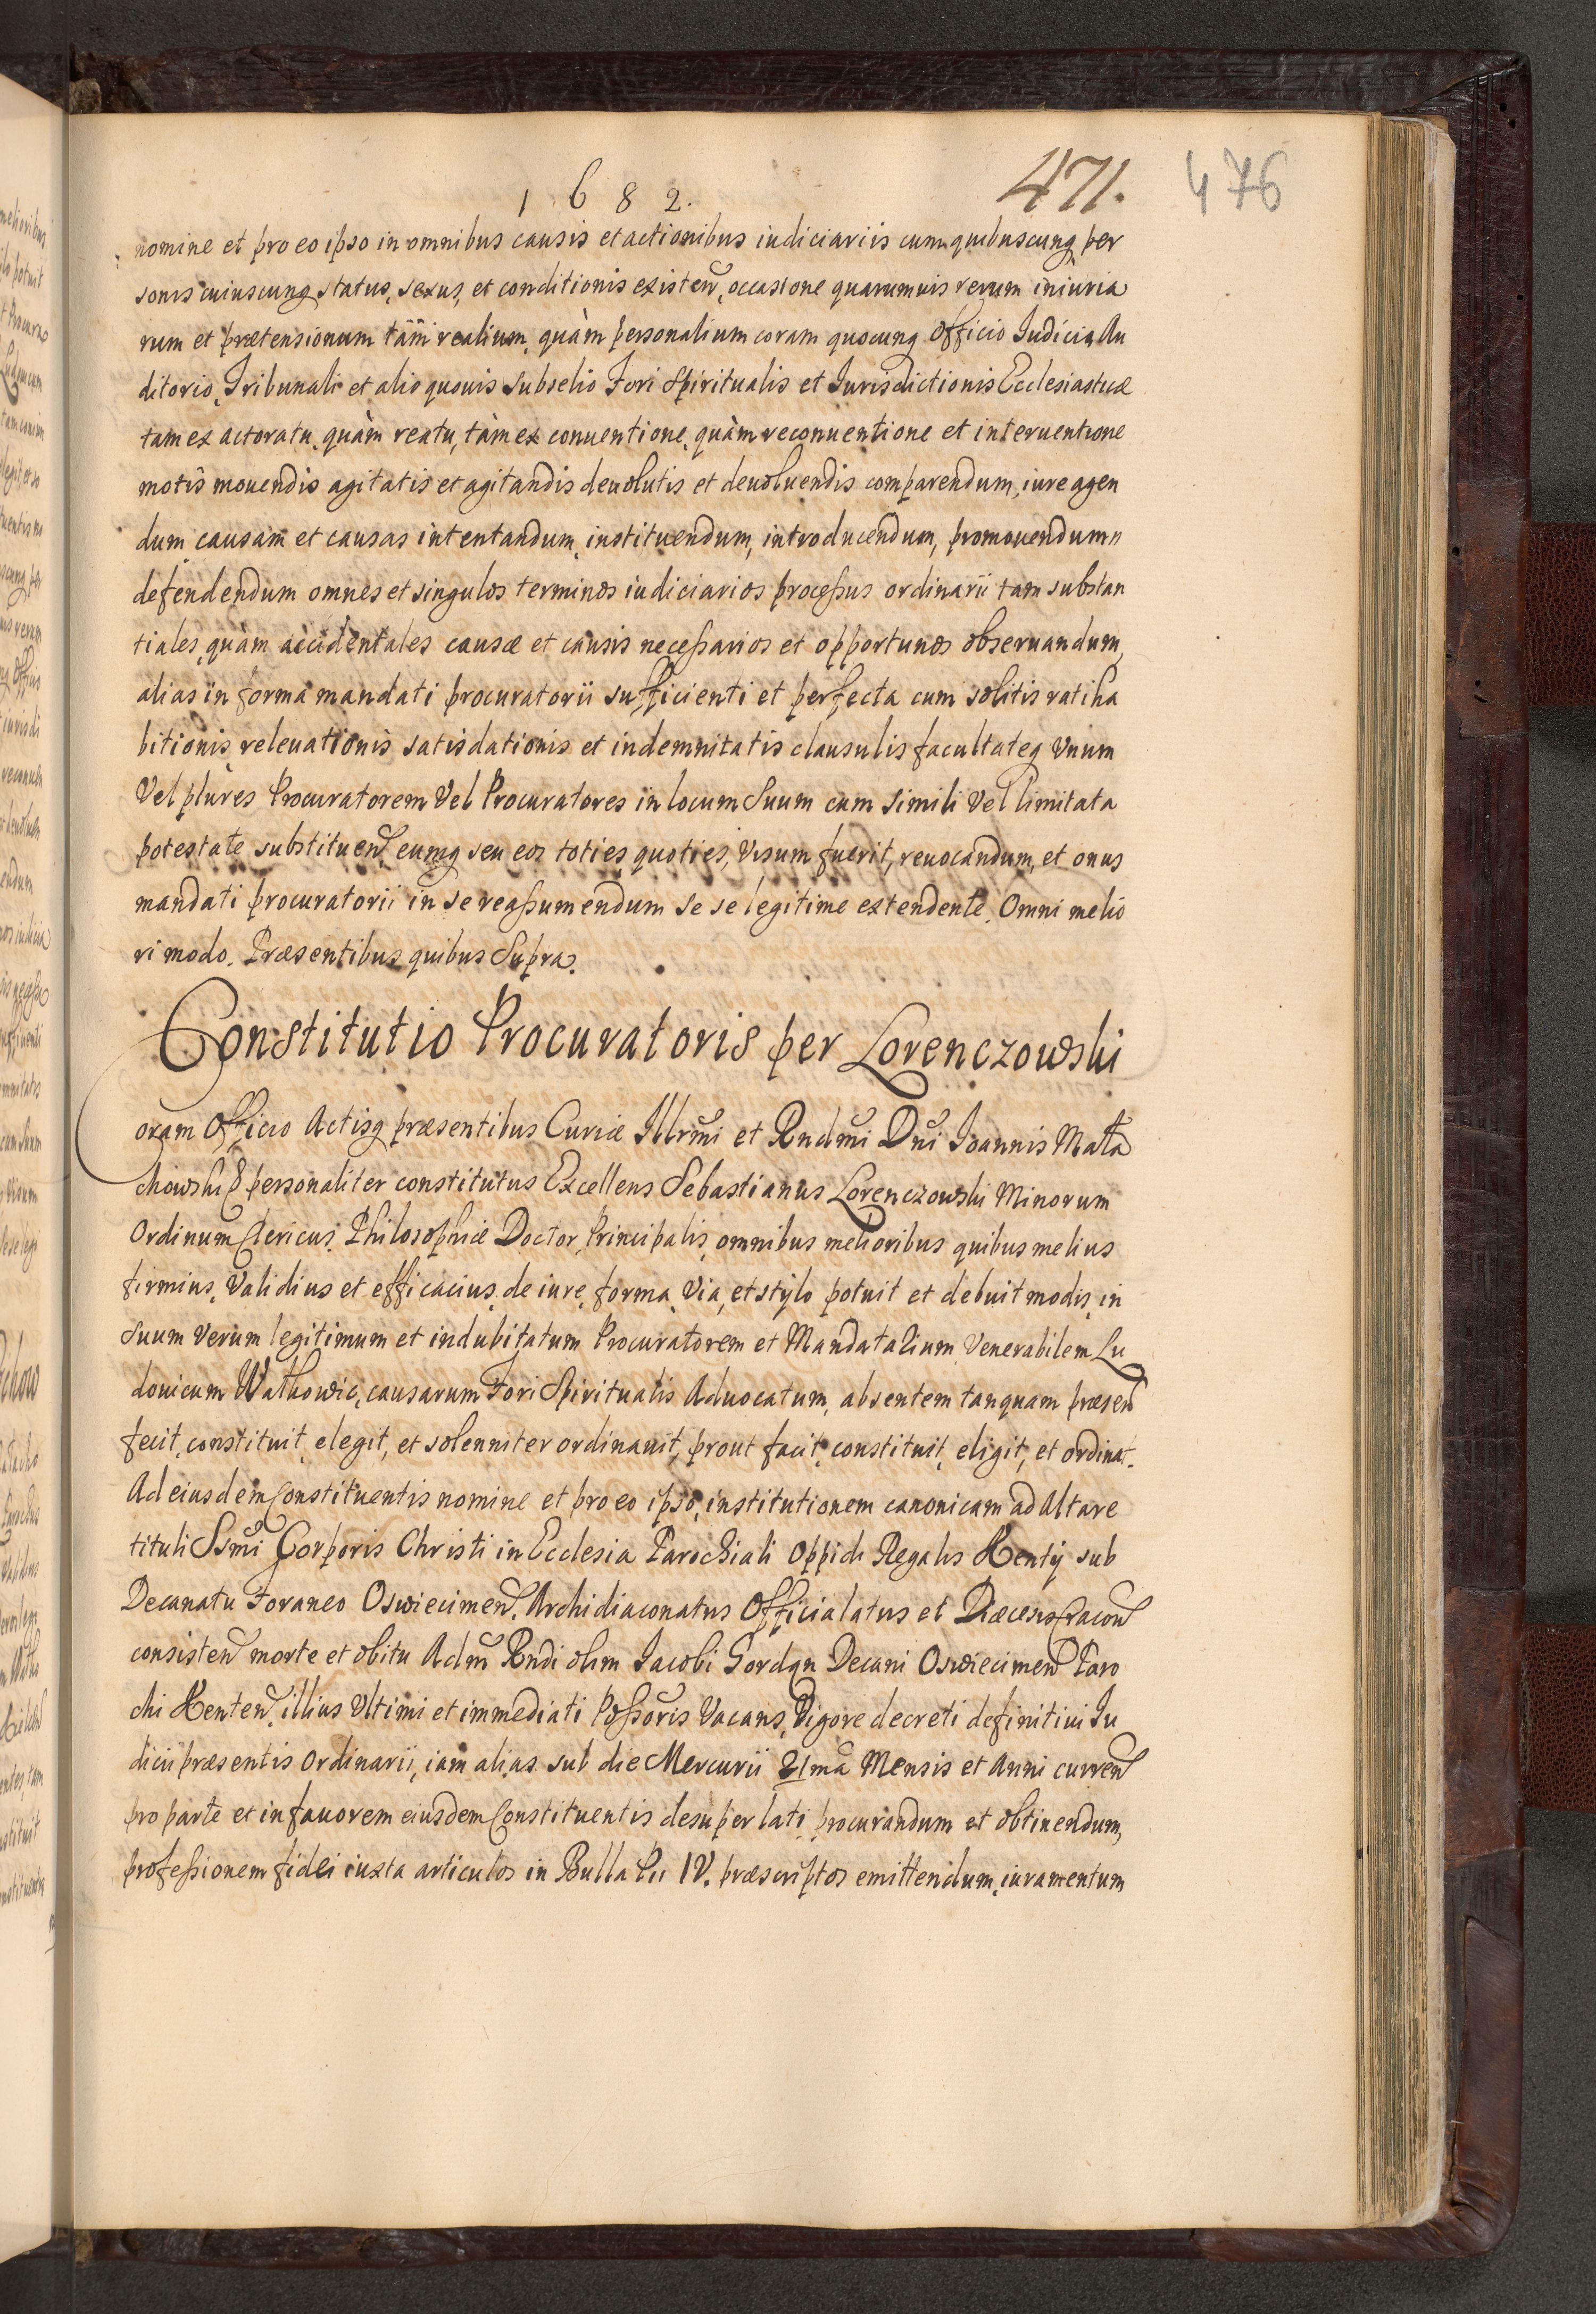 1 6 8 2.
471.
476
nomine et pro eo ipso in omnibus causis et actionibus iudiciariis cum quibuscunq per
sonis cuiuscunq status, sexus, et conditionis existen, occasione quarumuis rerum iniuria
rum et prætensionum tam realium, quàm personalium coram quocunq Officio Iudicio, Au
ditorio, Tribunali et alio quouis Subselio Fori Spiritualis et Iurisdictionis Ecclesiasticæ
tam ex actoratu, quàm reatu, tàm ex conuentione, quàm reconuentione et interuentione
motis mouendis agitatis et agitandis deuolutis et deuoluendis comparendum, iure agen
dum causam et causas intentandum, instituendum, introducendum, promouendum
defendendum omnes et singulos terminos iudiciarios proceßus ordinarii tam substan
tiales quàm accidentales causæ et causis neceßarios et opportunos obseruandum,
alias in forma mandati procuratorii sufficienti et perfecta cum solitis ratiha
bitionis, releuationis satisdationis et indemnitatis clausulis facultateq Vnum
Vel plures Procuratorem Vel Procuratores in locum Suum cum Simili Vel limitata
potestate substituen, eumq seu eos toties, quoties, Visum fuerit, reuocandum, et onus
mandati procuratorii in se reaßumendum se se legitime extendente. Omni melio
ri modo. Præsentibus quibus Supra.
Constitutio Procuratoris per Lorenczowski
Coram Officio Actisq præsentibus Curiæ Illrmi et Rndmi Dni Ioannis Mała
chowski & personaliter constitutus Excellens Sebastianus Lorenczowski Minorum
Ordinum Clericus, Philosophiæ Doctor, Principalis, omnibus melioribus quibus melius
firmius, Validius et efficacius, de iure, forma, Via, et stylo potuit et debuit modis, in
Suum Verum legitimum et indubitatum Procuratorem et Mandatarium Venerabilem Lu
douicum Wathowic, causarum Fori Spiritualis Aduocatum, absentem tanquam præsen
fecit, constituit, elegit, et solenniter ordinauit, prout facit, constituit, eligit, et ordinat.
Ad eiusdem Constituentis nomine et pro eo ipso, institutionem canonicam ad Altare
tituli Ssmi Corporis Christi in Ecclesia Parochiali Oppidi Regalis Kenty sub
Decanatu Foraneo Oswiecimen. Archidiaconatus Officialatus et Diæcesis Cracou
consisten morte et obitu Adm Rndi olim Iacobi Gordon Decani Oswiecimen Paro
chi Kenten. illius Vltimi et immediati Poßoris Vacans, Vigore decreti definitiui Iu
dicii præsentis Ordinarii, iam alias sub die Mercurii 21ma Mensis et Anni curren
pro parte et in fauorem eiusdem Constituentis desuper lati, procurandum et obtinendum,
profeßionem fidei iuxta articulos in Bulla Pii IV. præscriptos emittendum, iuramentum